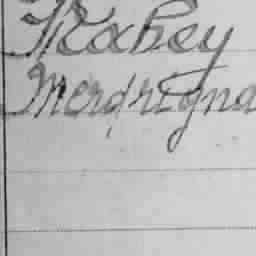 Mahey
Merdrigna